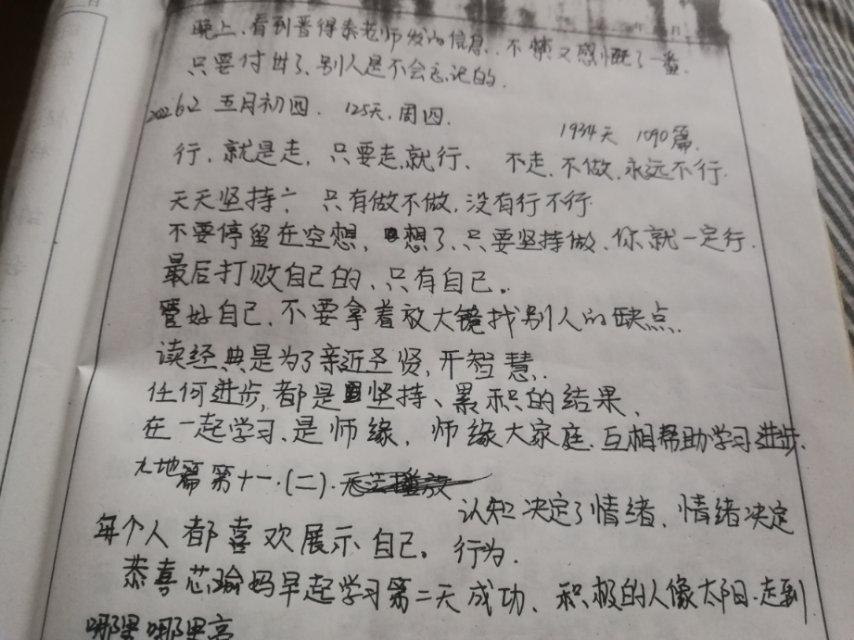 晚上、看到晋得泰老师发的信息、不禁又感慨了一番.
只要付出了、别人是不会忘记的.
2022.6.2 五月初四. 125天.周四.
1934天 1090篇.
行、就是走, 只要走、就行、 不走、不做、永远不行.
天天坚持: 只有做不做、没有行不行.
不要停留在空想, 想了、只要坚持做、你就一定行.
最后打败自己的、只有自己.
管好自己、不要拿着放大镜找别人的缺点.
读经典是为了亲近圣贤,开智慧.
任何进步,都是坚持、累积的结果、
在一起学习、是师缘, 师缘大家庭、互相帮助学习进步.
地篇第十一.(二).
认知决定了情绪、情绪决定
每个人都喜欢展示自己。 行为.
恭喜芯瑜妈早起学习第二天成功、积极的人像太阳.走到
哪里哪里亮